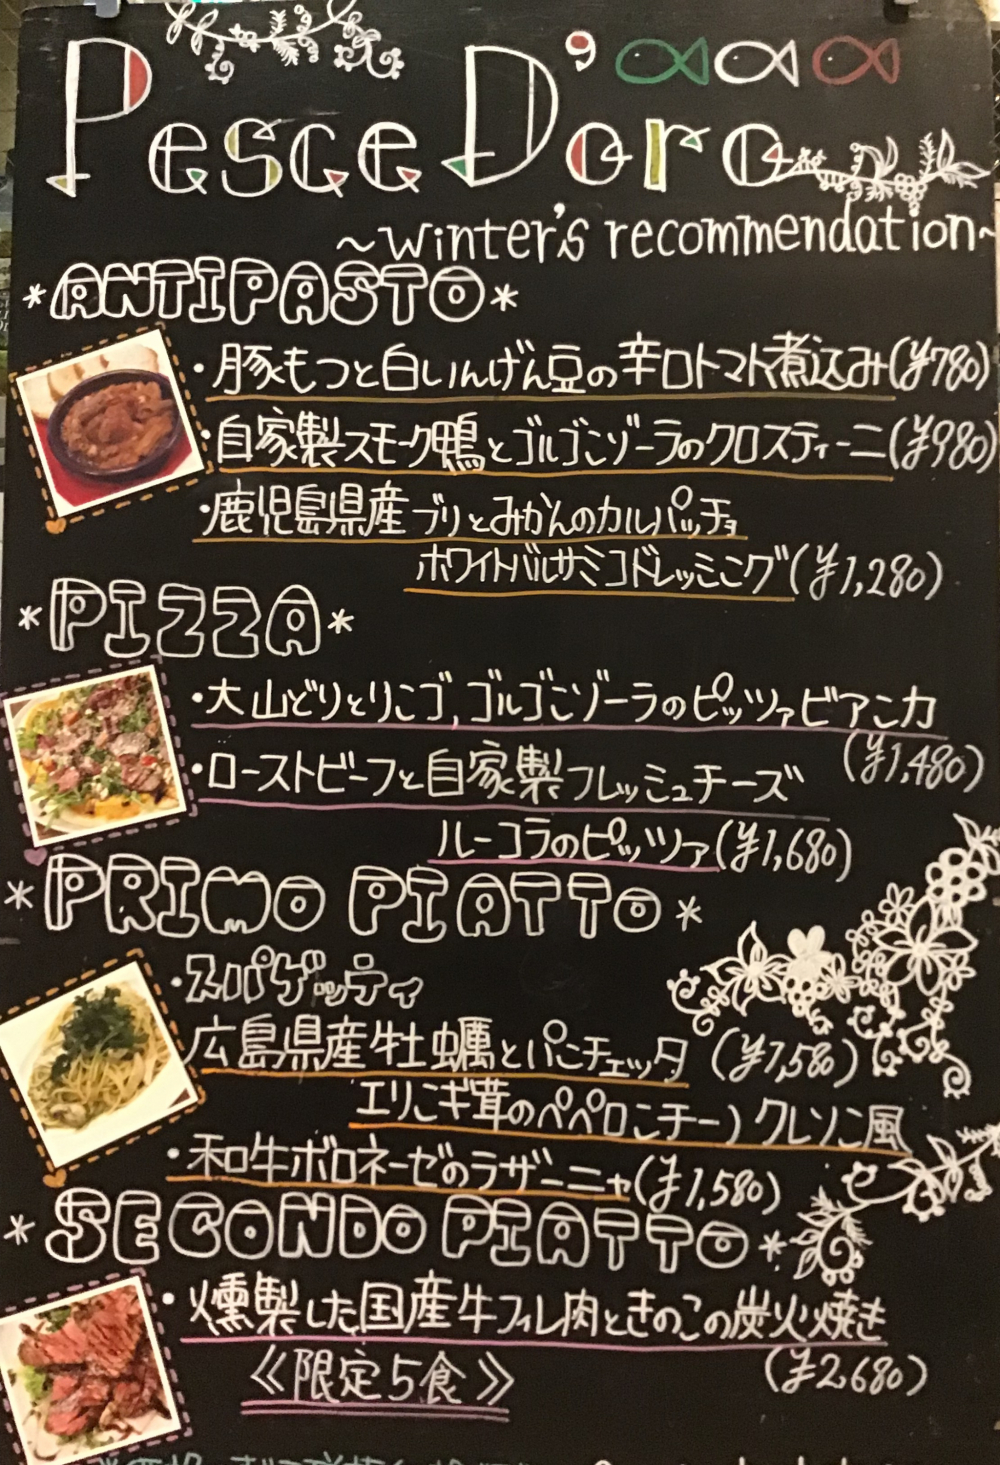 Pesce D'oro
~winter's recommendation~
*ANTIPASTO*
・豚もつと白いんげん豆の辛口トマト煮込み(¥780)
・自家製スモーク鴨とゴルゴンゾーラのクロスティーニ(¥980)
・鹿児島県産ブリとみかんのカルパッチョ
ホワイトバルサミコドレッシング(¥1,280)
*PIZZA*
・大山どりとリコゴ,ゴルゴンゾーラのピッツァビアンカ
(¥1,480)
・ローストビーフと自家製フレッシュチーズ
ルーコラのピッツァ(¥1,680)
*PRIMO PIATTO*
・スパゲッティ
広島県産牡蠣とパンチェッタ (¥1,580)
エリンギ茸のペペロンチーノ クレソン風
・和牛ボロネーゼのラザーニャ(¥1,580)
*SECONDO PIATTO*
・燻製した国産牛フィレ肉ときのこの炭火焼き
(¥2,680)
《限定5食》